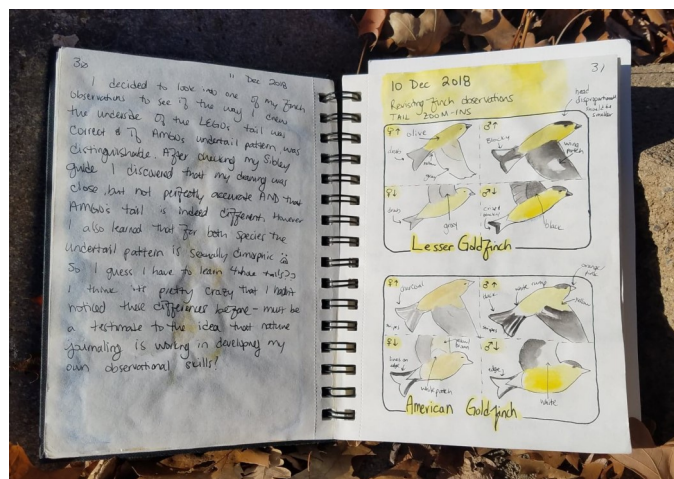 30
11 Dec 2018
I decided to look into one of my finch
observations to see if the way I drew
the underside of the LEGOs tail was
correct & if AMGOs undertail pattern was
distinguishable. After checking my Sibley
guide I discovered that my drawing was
close, but not perfectly accurate AND that
AMGOs tail is indeed different. However
I also learned that for both species the
undertail pattern is sexually dimorphic
So I guess I have to learn 4 whole tails??
I think its pretty crazy that I hadnt
noticed these differences before - must be
a testimate to the idea that nature
journaling is working in developing my
own observational skills!
31
10 Dec 2018
Revisiting finch observations
TAIL ZOOM-INS
head
disproportionate
should be
smaller
♀↑
olive
♂↑
Blocky
wing
patch
gray
♀↓
♂↓
gray
black
Lesser Goldfinch
♀↑
charcoal
♂↑
white rump
orange/
pink
yellow
♀↓
yellow/
brown
♂↓
lines on
edge
edge
white patch
white
American Goldfinch